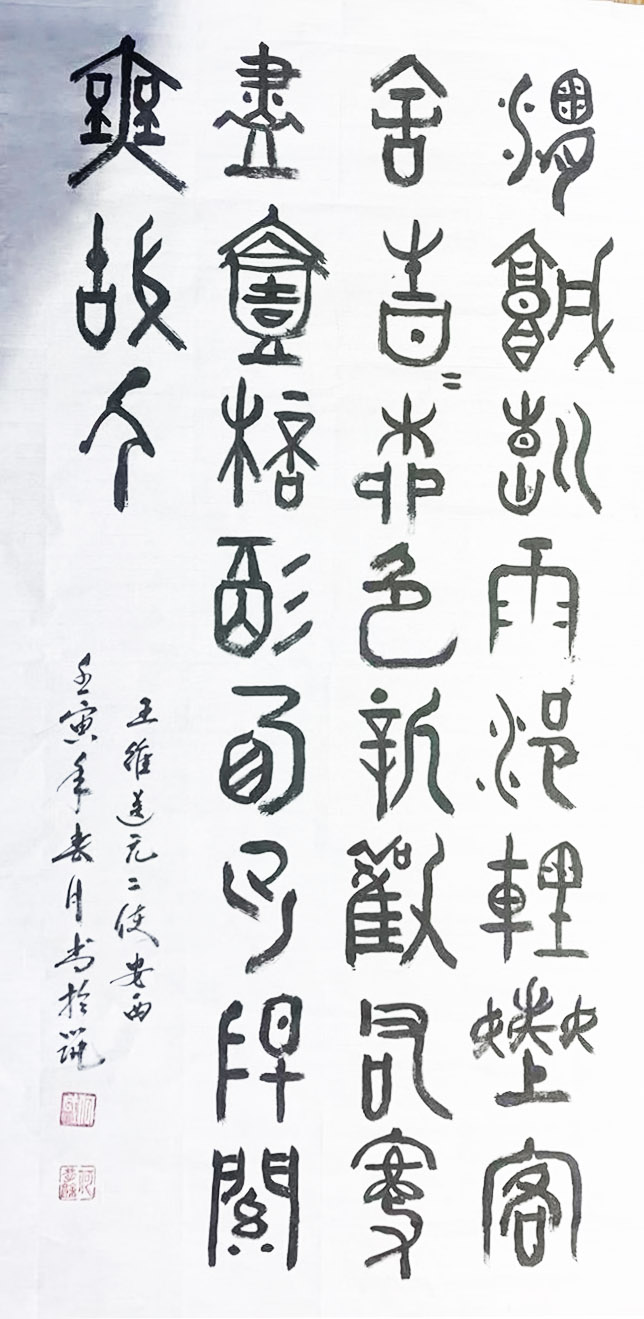 渭城朝雨浥輕塵客
舍青=柳色新勸君更
盡壹桮酒西出陽關
無故人
王維送元二使安西
壬寅年春月书於